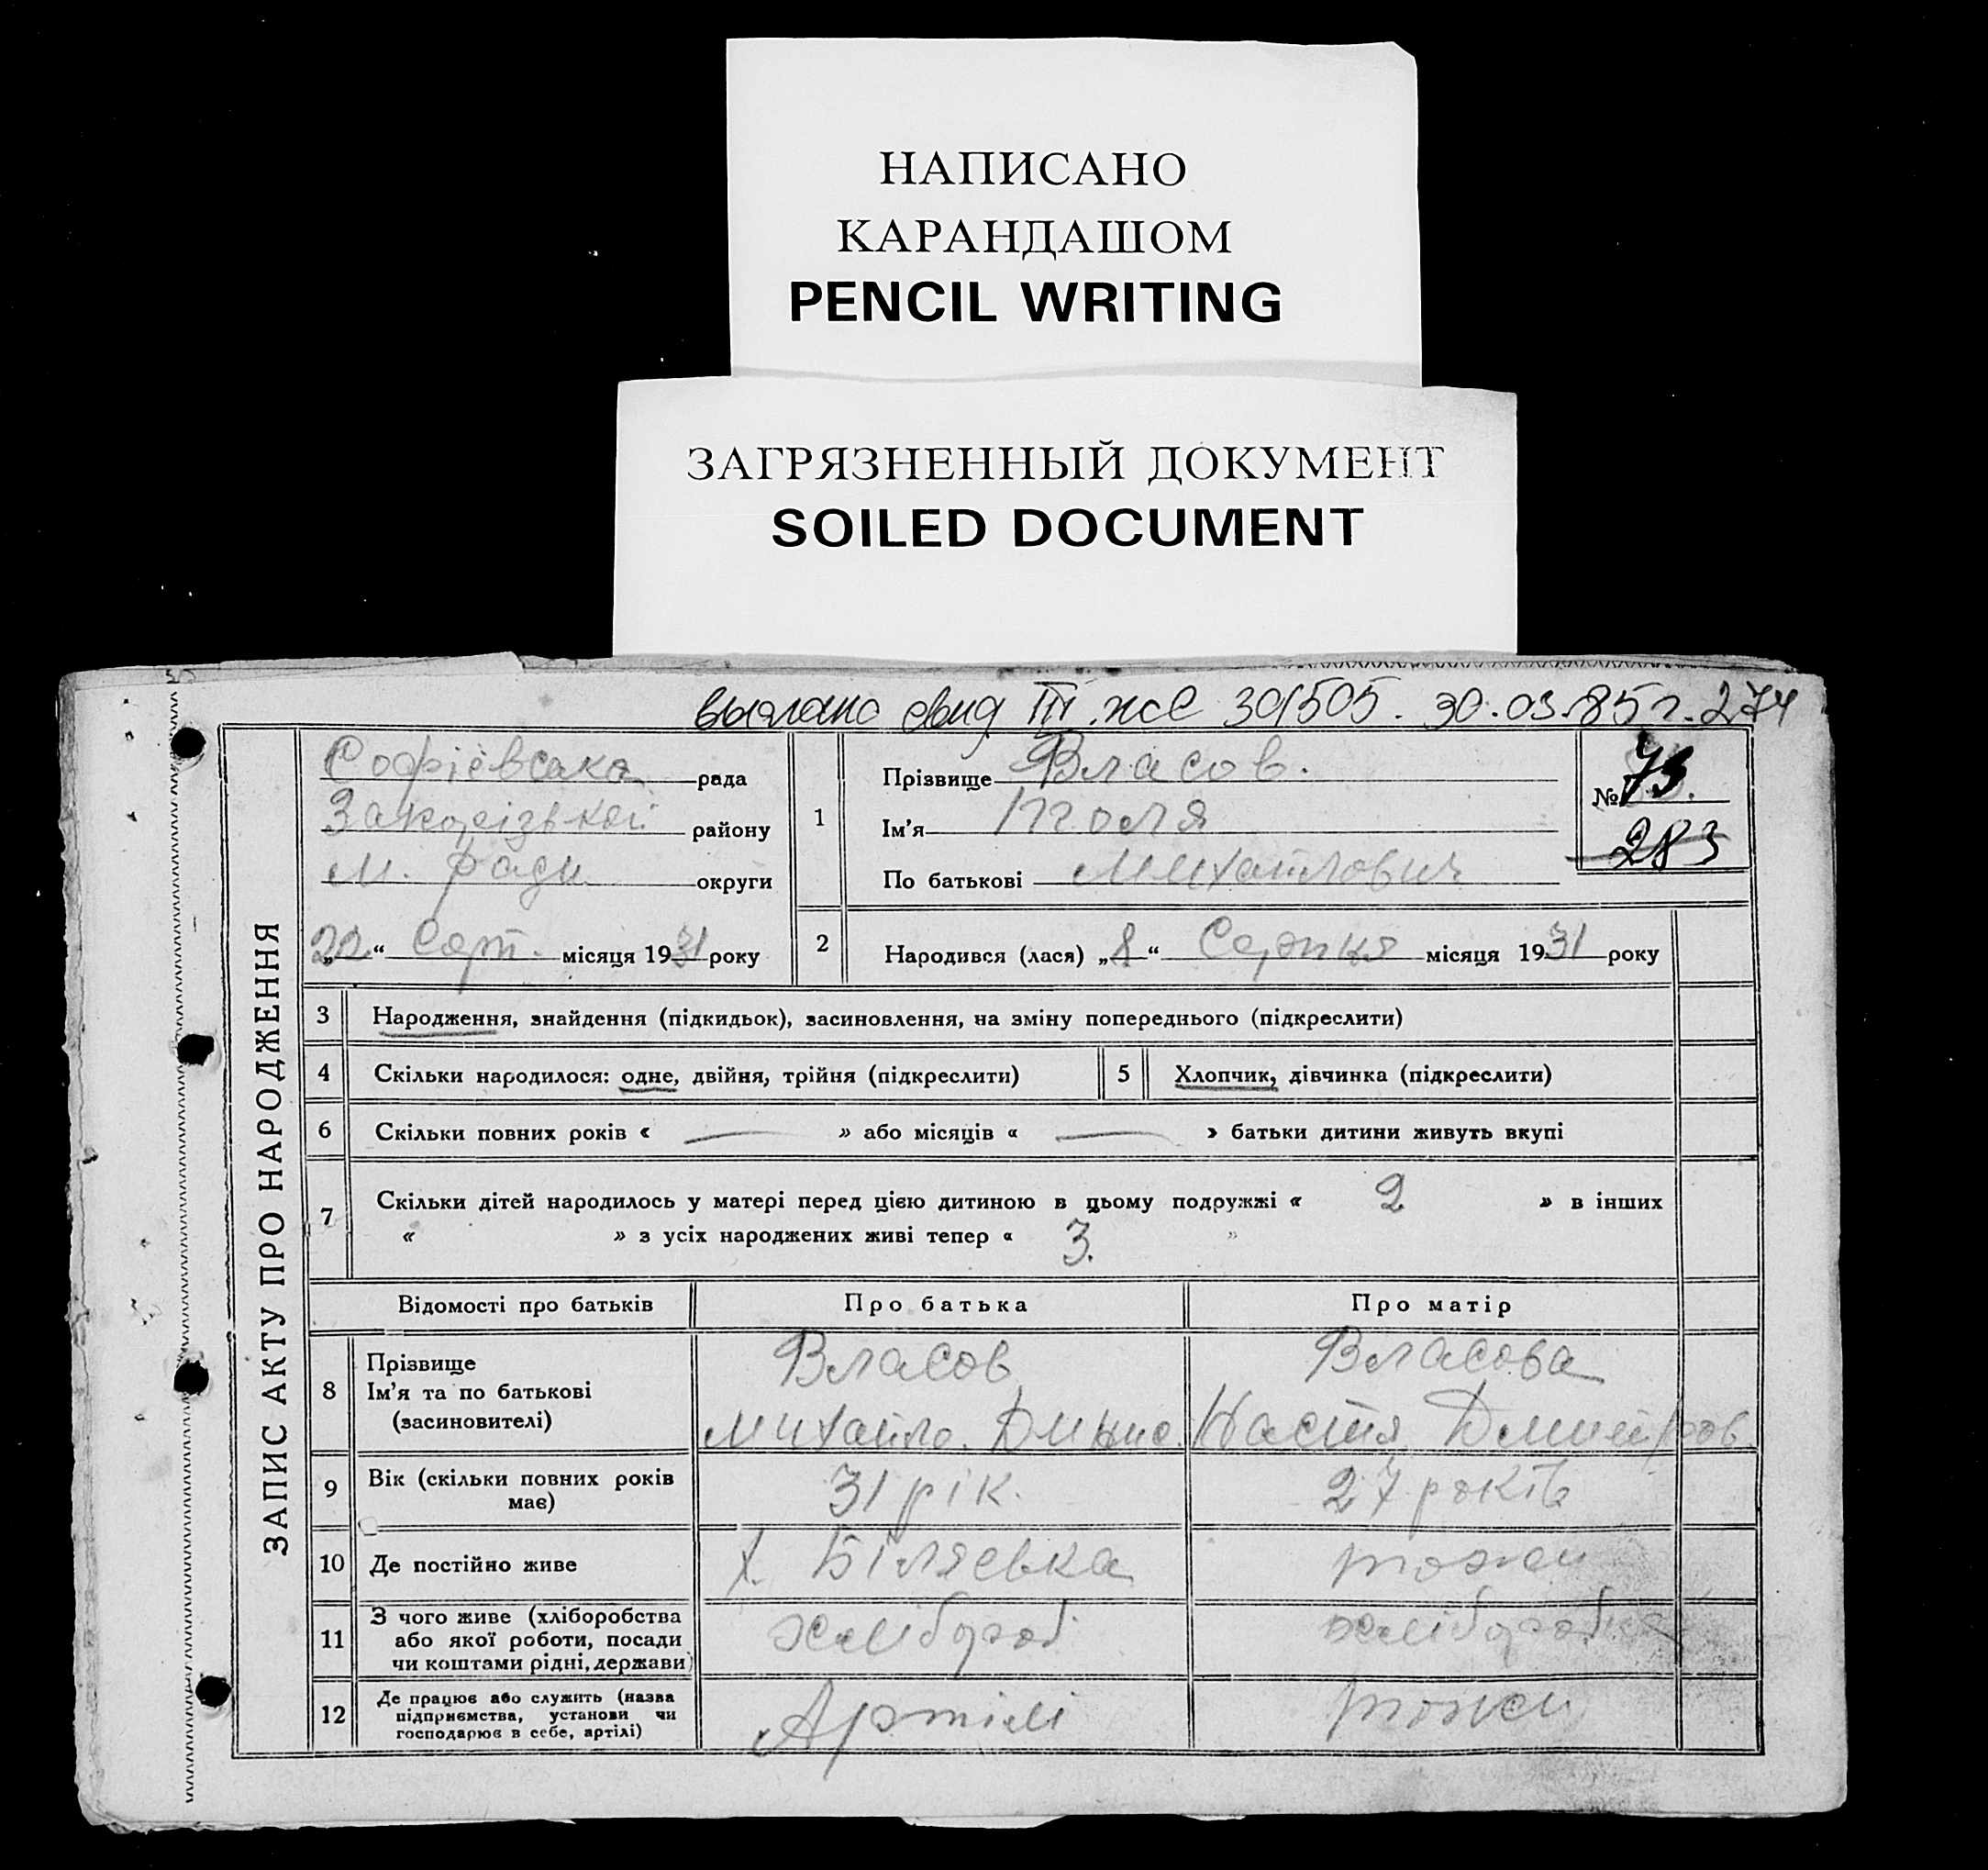 НАПИСАНО
КАРАНДАШОМ
PENCIL WRITING
ЗАГРЯЗНЕННЫЙ ДОКУМЕНТ
SOILED DOCUMENT
выдано свид III жс 301505. 30.03.85г. 274
ЗАПИС АКТУ ПРО НАРОДЖЕННЯ
Софіевська рада
району
М. Ради округи
„22“ Серп. місяця 1931 року
1
Прізвище Власов.
Ім'я Тт оля
По батькові Михайлович
№ 73
283
2
Народився (лася) „8“ Серпня місяця 1931 року
3 Народження, знайдення (підкидьок), засиновлення, на зміну попереднього (підкреслити)
4 Скільки народилося: одне, двійня, трійня (підкреслити)
5 Хлопчик, дівчинка (підкреслити)
6 Скільки повних років « — » або місяців « — » батьки дитини живуть вкупі
7 Скільки дітей народилось у матері перед цією дитиною в цьому подружжі « 2 » в інших
« » з усіх народжених живі тепер « 3. »
Відомості про батьків Про батька Про матір
8 Прізвище
Ім'я та по батькові
(засиновителі)
Власов
Михайло. Дінис.
Власова
Настя Дмитров.
9 Вік (скільки повних років
має)
31 рік.
27 років
10 Де постійно живе
х. Біляевка
тожеи
11 З чого живе (хліборобства
або якої роботи, посади
чи коштами рідні, держави)
хлібороб
хліборобка
12 Де працює або служить (назва
підприємства, установи чи
господарює в себе, артілі)
Артілі
тожеи